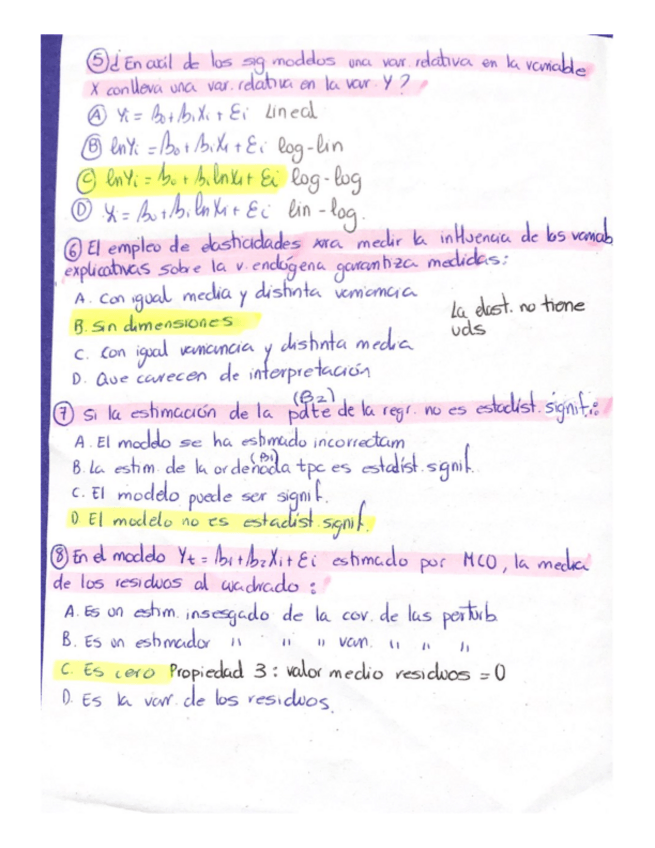 ⑤ ¿En cuál de los sig modelos una var. relativa en la variable
X conlleva una var. relativa en la var. Y?
Ⓐ Yi = β0 + β1Xi + Ei Lineal
Ⓑ lnYi = β0 + β1Xi + Ei log-lin
Ⓒ lnYi = β0 + β1lnXi + Ei log-log
Ⓓ Yi = β0 + β1lnXi + Ei lin-log.
⑥ El empleo de elasticidades para medir la influencia de las variab
explicativas sobre la v. endógena garantiza medidas:
A. Con igual media y distinta varianza
B. Sin dimensiones
La elast. no tiene
uds
C. Con igual varianza y distinta media
D. Que carecen de interpretación
(β2)
⑦ Si la estimación de la pdte de la regr. no es estadíst. signif.:
A. El modelo se ha estimado incorrectam
(β1)
B. La estim. de la ordenada tpc es estadíst. signif.
C. El modelo puede ser signif.
D El modelo no es estadíst. signif.
⑧ En el modelo Yt = β1 + β2Xi + Ei estimado por MCO, la media
de los residuos al cuadrado:
A. Es un estim. insesgado de la cov. de las perturb
B. Es un estimador " " " van. " " "
C. Es cero Propiedad 3: valor medio residuos = 0
D. Es la var. de los residuos.